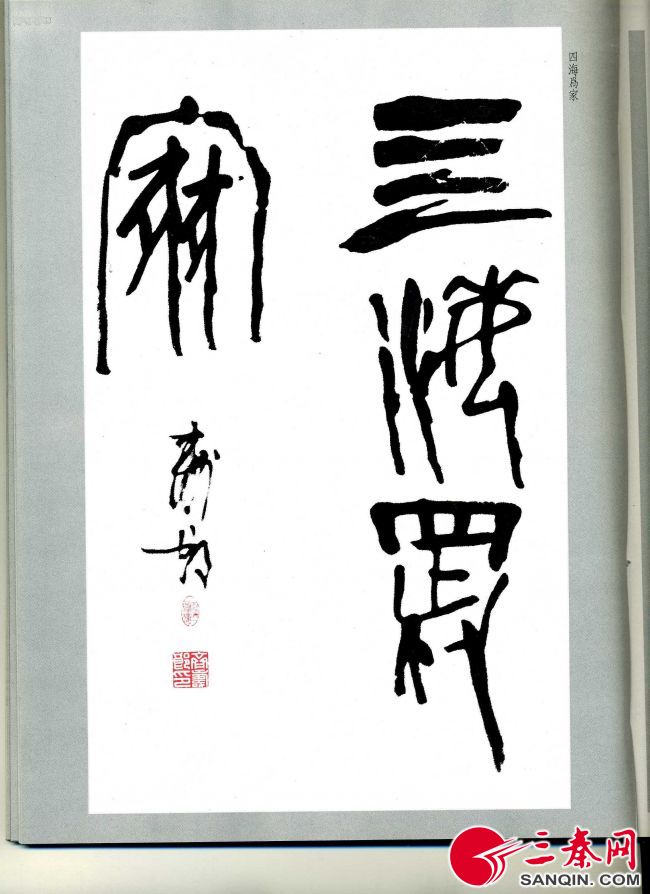 四海爲家
四海爲
家
三秦网
SANQIN.COM